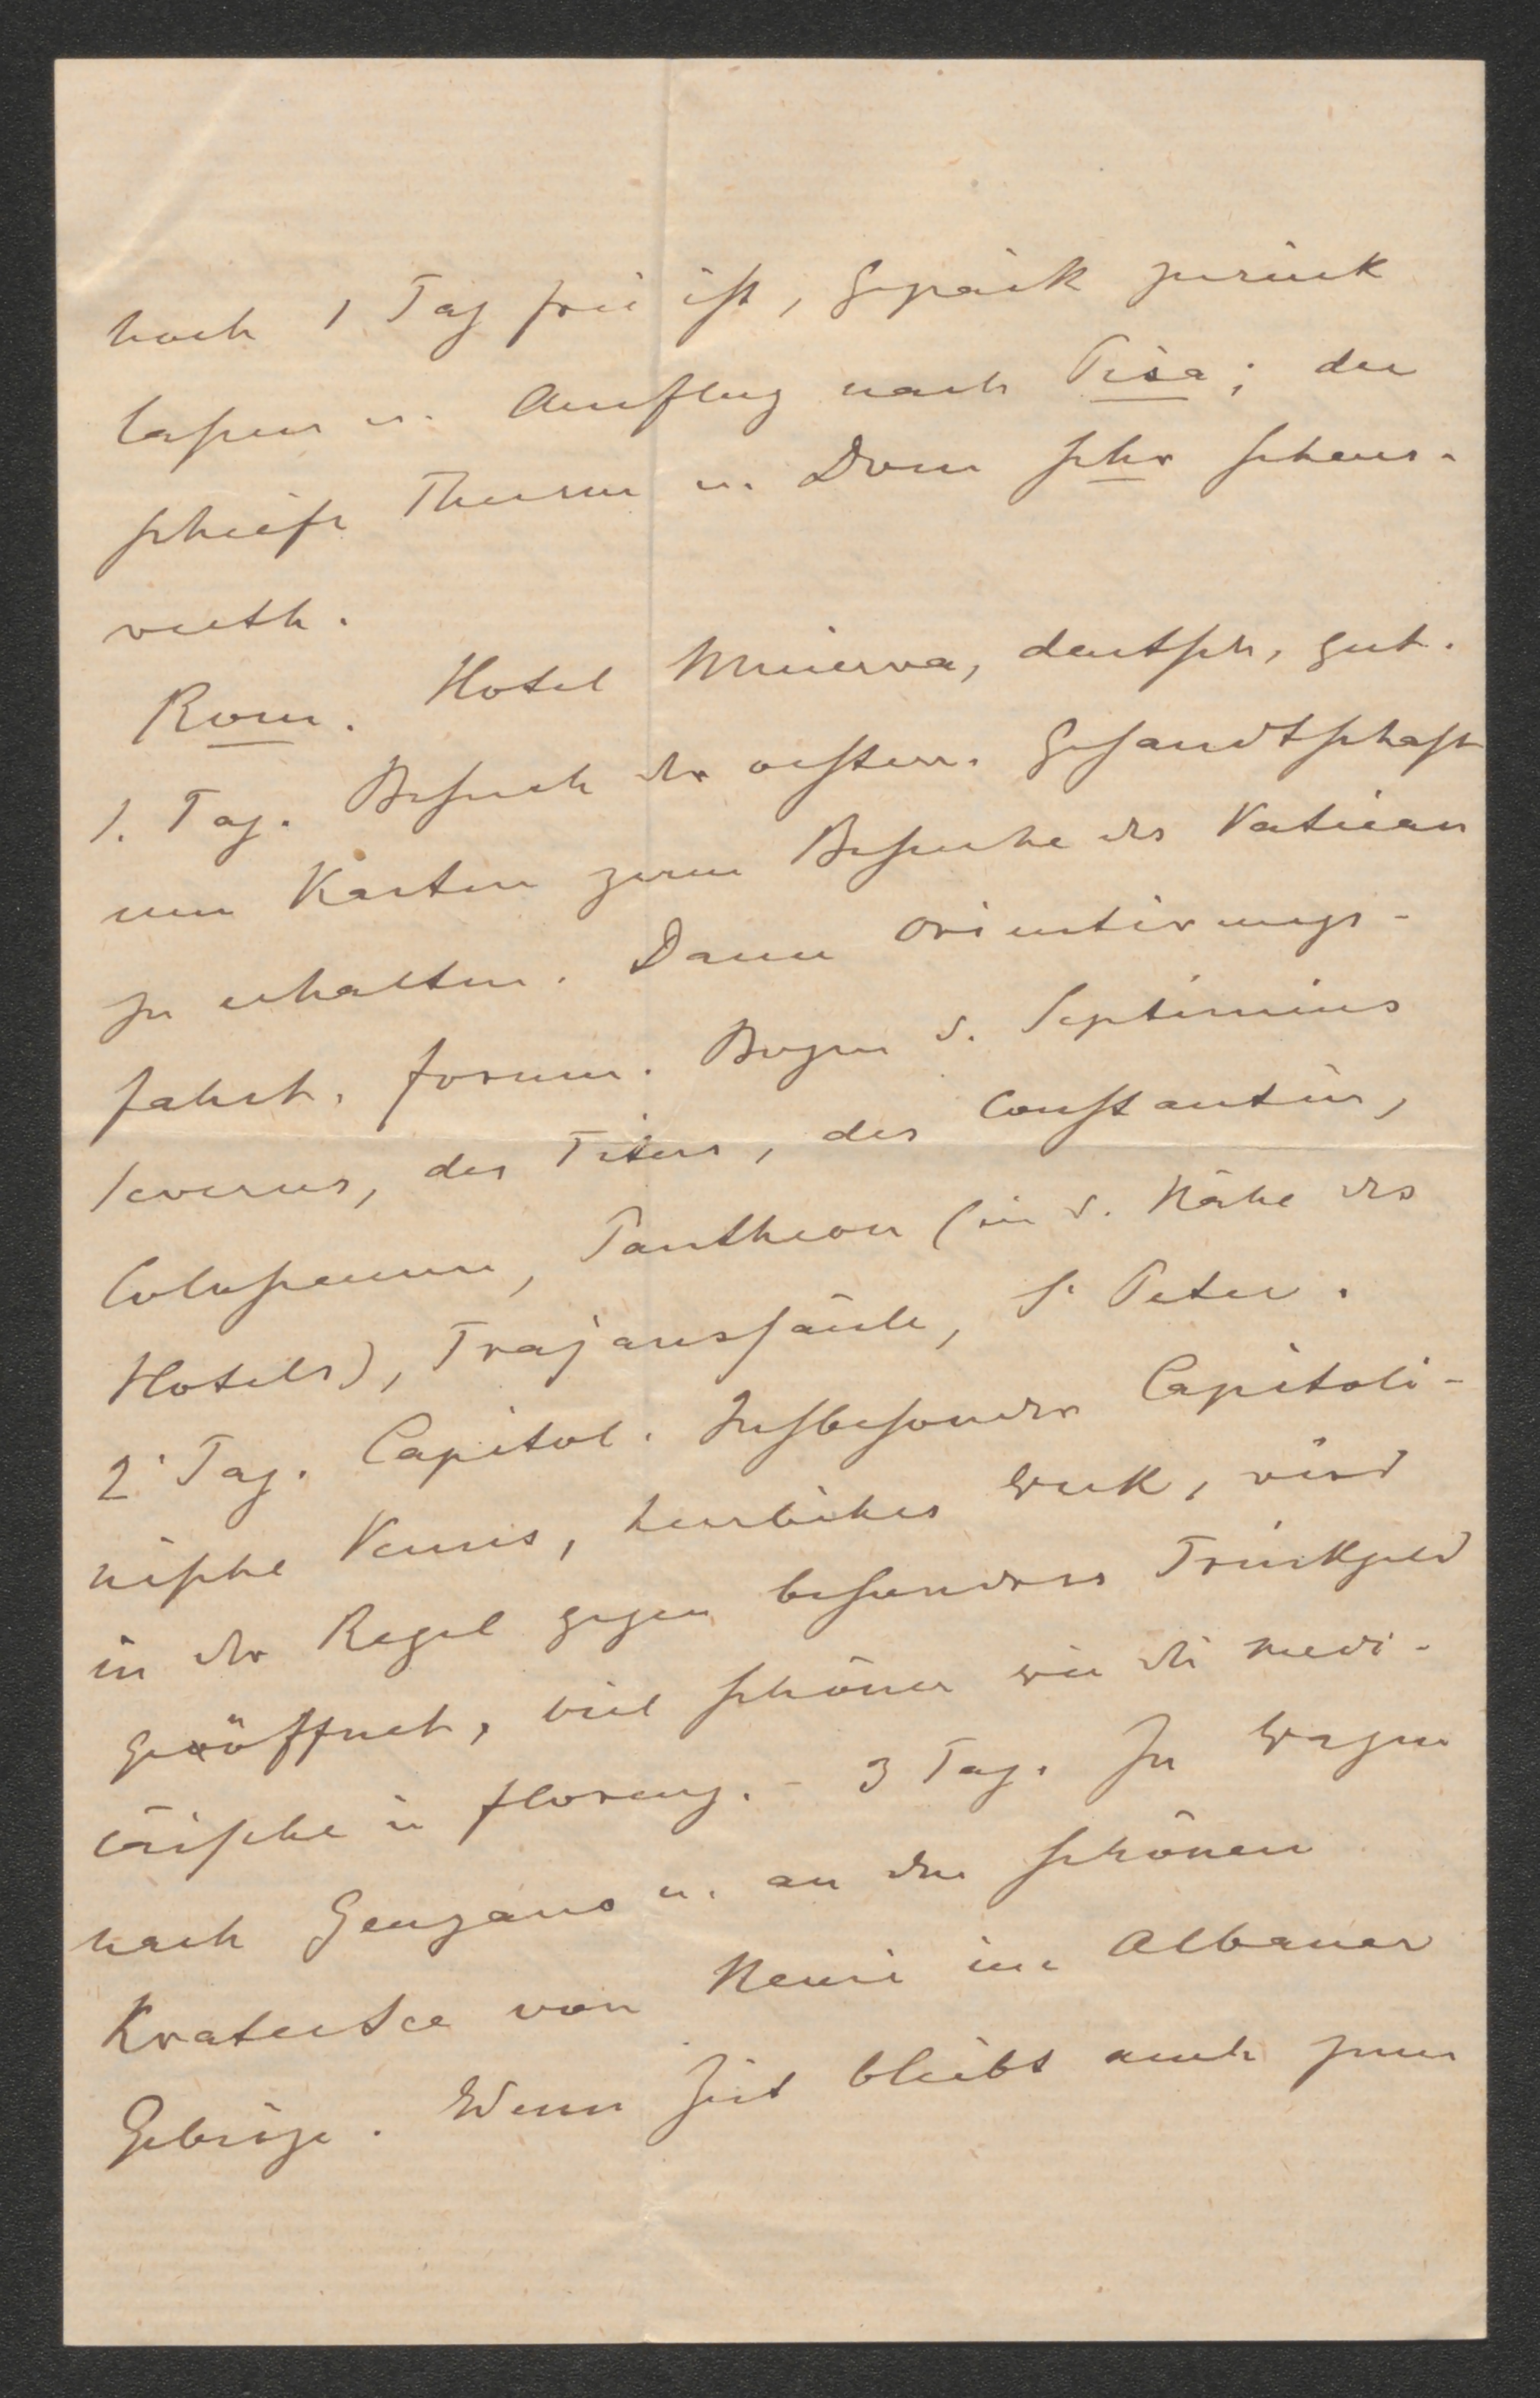 noch 1 Tag frei ist, Gepäck zurück
lassen u. Ausflug nach Pisa; der
schiefe Thurm u. Dom sehr sehens-
werth.
Rom. Hotel Minerva, deutsch, gut.
1. Tag. Besuch der oesterr. Gesandtschaft
um Karten zum Besuche des Vatican
zu erhalten. Dann Orientirungs-
fahrt. Forum. Bogen d. Septimius
Severus, des Titus, des Constantin,
Colosseum, Pantheon (in d. Nähe des
Hotels), Trajanssäule, S. Peter.
2. Tag. Capitol. Insbesondere Capitoli-
nische Venus, herrliches Werk, wird
in der Regel gegen besonderes Trinkgeld
geöffnet, viel schöner wie die medi-
cäische in Florenz. - 3 Tag. Zu Wagen
nach Genzano u. an den schönen
Kratersee von Nemi im Albaner
Gebirge. Wenn Zeit bleibt auch zum